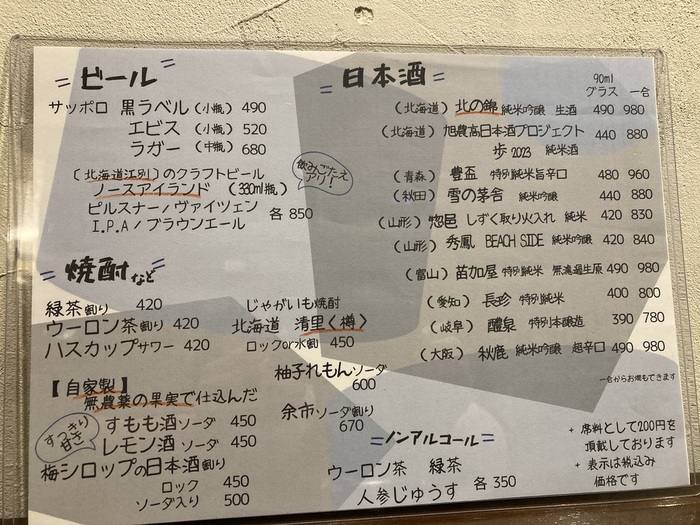 ビール
サッポロ 黒ラベル (小瓶) 490
エビス (小瓶) 520
ラガー (中瓶) 680
〔北海道江別〕のクラフトビール
ノースアイランド (330ml瓶)
飲みごたえアリ!
ピルスナー/ヴァイツェン
I.P.A/ブラウンエール 各850
焼酎など
緑茶割り 420
ウーロン茶割り 420
ハスカップサワー 420
じゃがいも焼酎
北海道 清里〈樽〉
ロックor水割 450
柚子れもんソーダ
600
余市ソーダ割り
670
【自家製】
無農薬の果実で仕込んだ
すっきり甘さ
すもも酒ソーダ 450
レモン酒ソーダ 450
梅シロップの日本酒割り
ロック 450
ソーダ入り 500
日本酒
90ml
グラス 一合
(北海道) 北の錦 純米吟醸 生酒 490 980
(北海道) 旭農高日本酒プロジェクト 440 880
歩2023 純米酒
(青森) 豊盃 特別純米旨辛口 480 960
(秋田) 雪の茅舎 純米吟醸 440 880
(山形) 惣邑 しずく取り火入れ 純米 420 830
(山形) 秀鳳 BEACH SIDE 純米吟醸 420 840
(富山) 苗加屋 特別純米 無濾過生原 490 980
(愛知) 長珍 特別純米 400 800
(岐阜) 醴泉 特別本醸造 390 780
(大阪) 秋鹿 純米吟醸 超辛口 490 980
一合からお燗もできます
ノンアルコール
ウーロン茶 緑茶
人参じゅうす 各350
+ 席料として200円を
頂戴しております
+ 表示は税込み
価格です